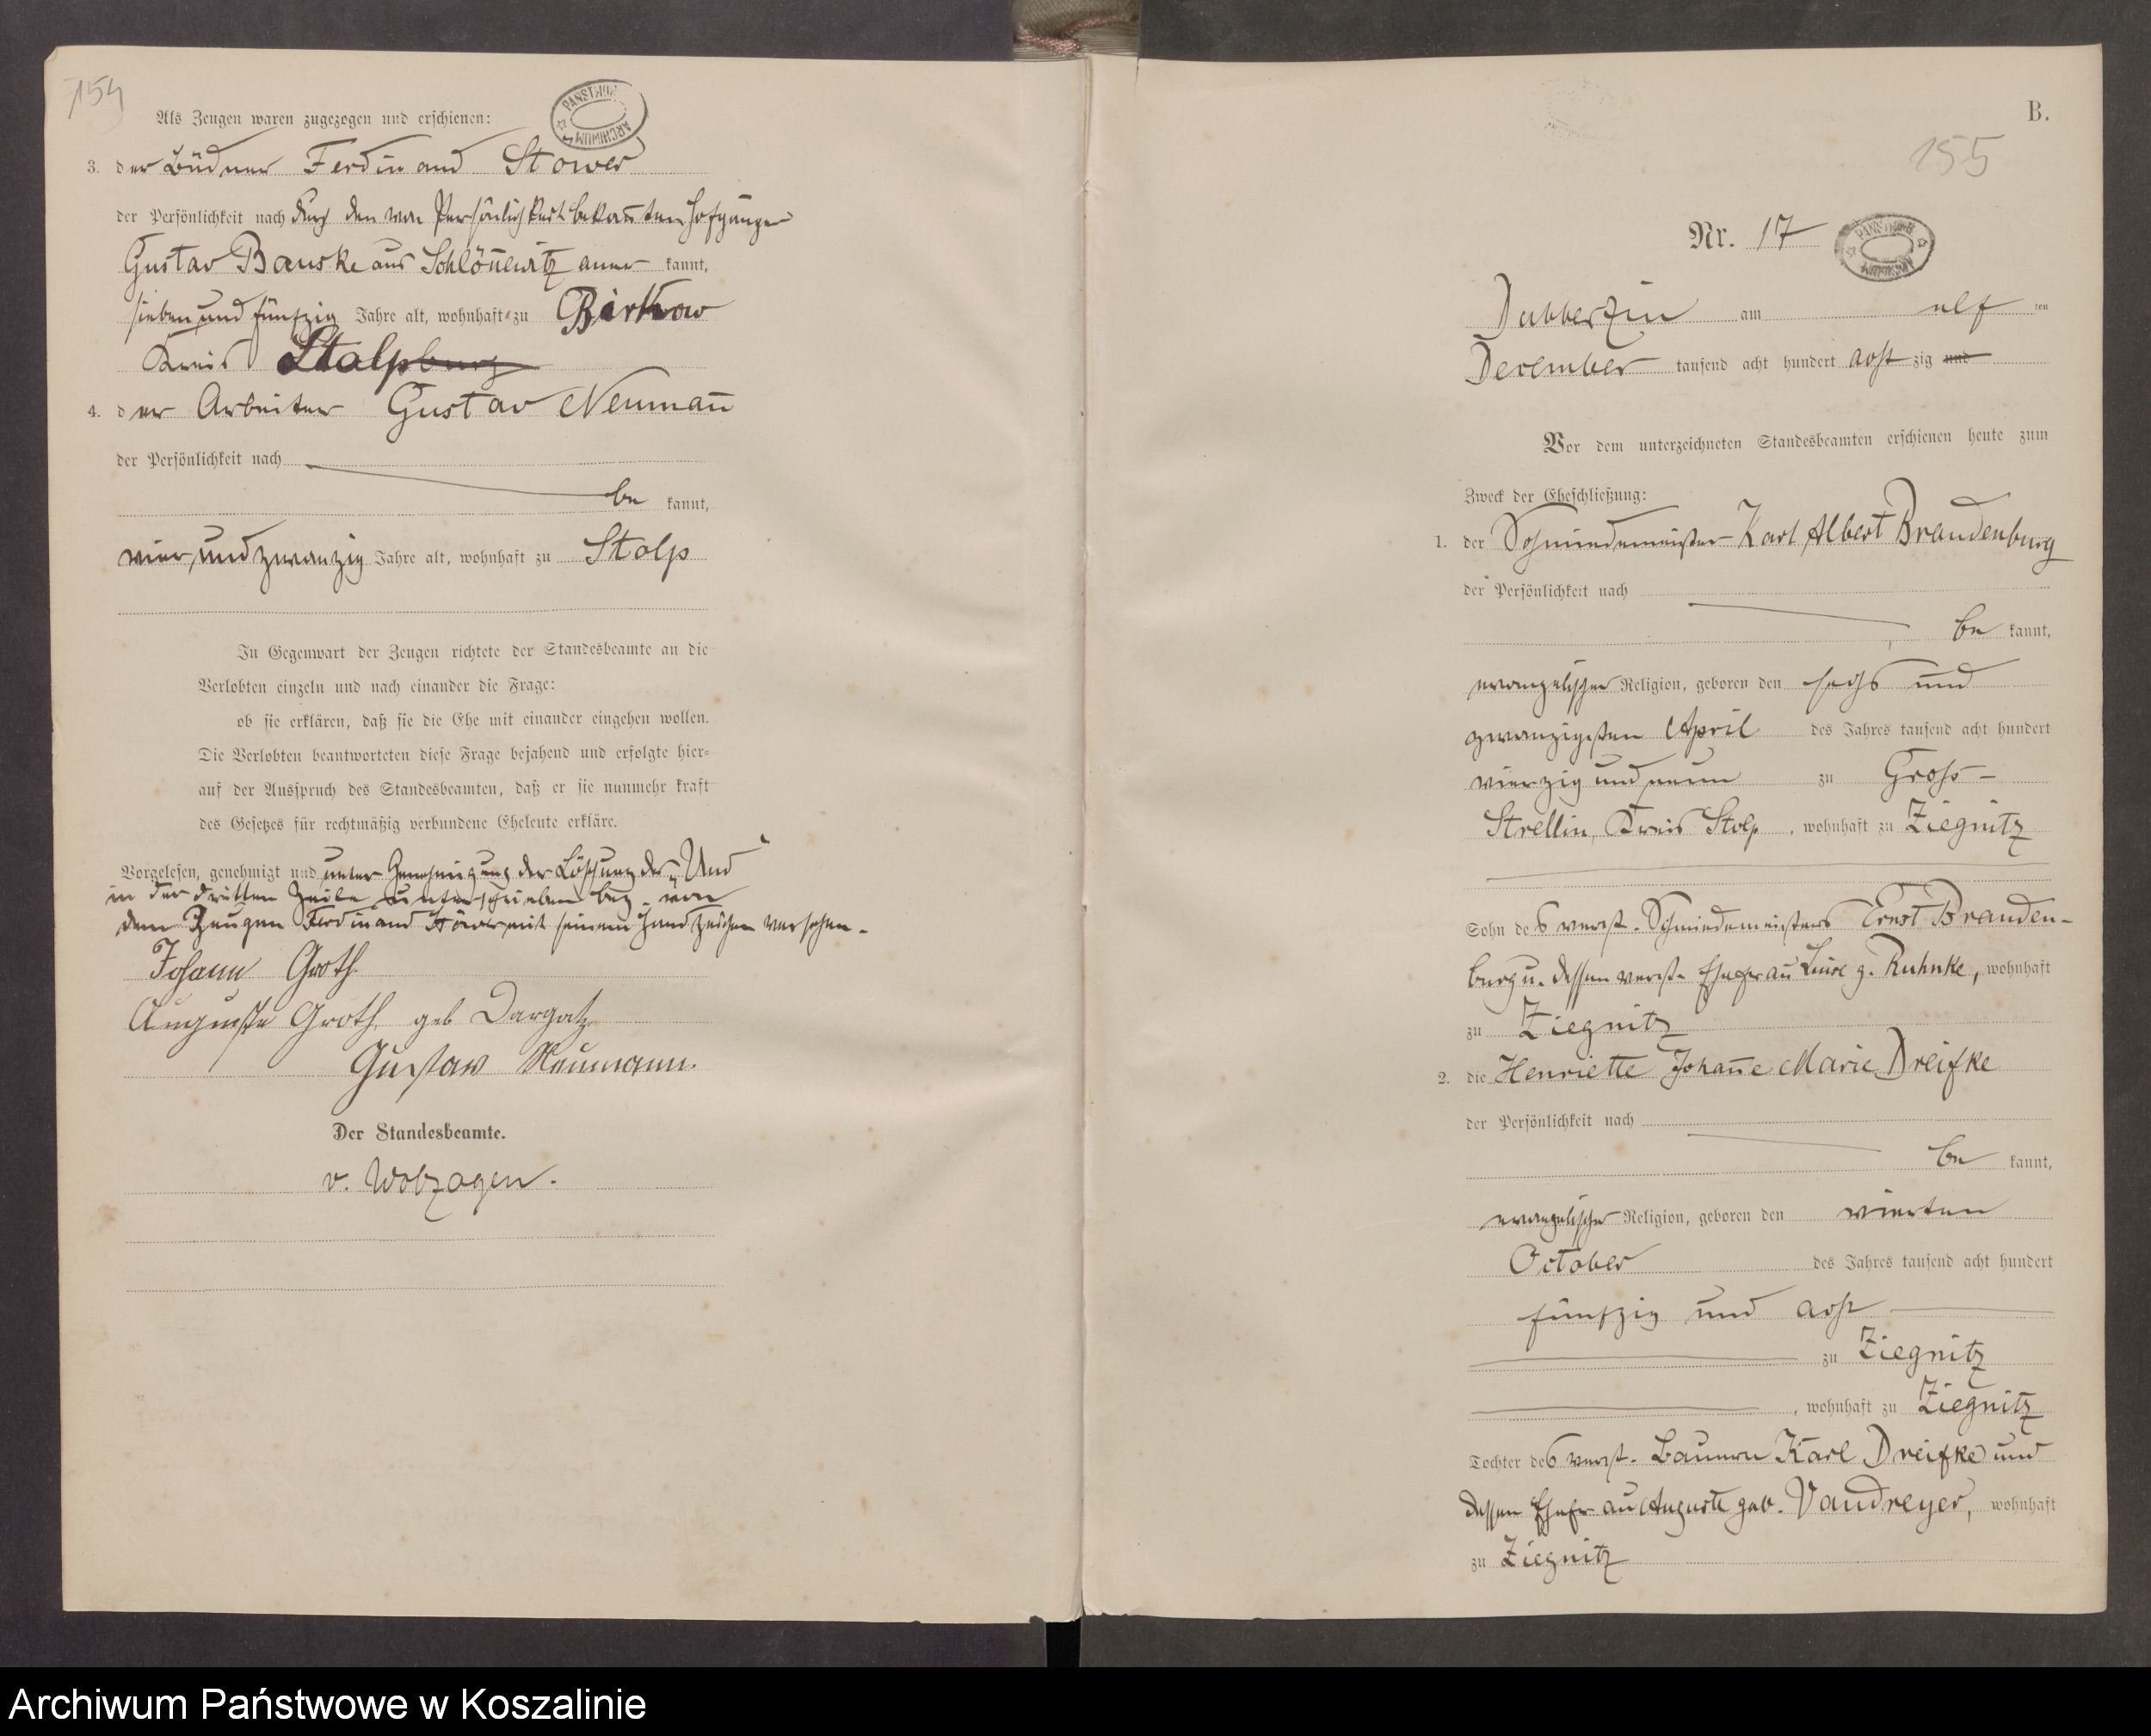 154
Als Zeugen waren zugezogen und erschienen:
PAŃSTWOWE
ARCHIWUM
3. der Büdner Ferdinand Stöwer
der Persönlichkeit nach durch den von Persönlichkeit bekañten Hofgänger
Gustav Banske aus Schlöñewitz aner kannt,
sieben und fünfzig Jahre alt, wohnhaft zu Birkow
Kreis Stolp
4. der Arbeiter Gustav Neumañ
der Persönlichkeit nach
be kannt,
vier und zwanzig Jahre alt, wohnhaft zu Stolp
In Gegenwart der Zeugen richtete der Standesbeamte an die
Verlobten einzeln und nach einander die Frage:
ob sie erklären, daß sie die Ehe mit einander eingehen wollen.
Die Verlobten beantworteten diese Frage bejahend und erfolgte hier-
auf der Ausspruch des Standesbeamten, daß er sie nunmehr kraft
des Gesetzes für rechtmäßig verbundene Eheleute erkläre.
Vorgelesen, genehmigt und unter Genehmigung der Löschung des „Und“
in der dritten Zeile unterschrieben bez. von
dem Zeugen Ferdinand Stöwer mit seinem Handzeichen versehen.
Johann Groth.
Auguste Groth geb Dargatz
Gustav Neumann.
Der Standesbeamte.
v. Wolzogen.
B.
155
Nr. 17
Dubberzin am elf ten
December tausend acht hundert acht zig und
Vor dem unterzeichneten Standesbeamten erschienen heute zum
Zweck der Eheschließung:
1. der Schmiedemeister Karl Albert Brandenburg
der Persönlichkeit nach
be kannt,
evangelischer Religion, geboren den sechs und
zwanzigsten April des Jahres tausend acht hundert
vierzig und neun zu Gross-
Strellin, Kreis Stolp, wohnhaft zu Ziegnitz
Sohn des verst. Schmiedemeisters Ernst Branden-
burg u. dessen verst. Ehefrau Luise g. Ruhnke, wohnhaft
zu Ziegnitz
2. die Henriette Johañe Marie Dreifke
der Persönlichkeit nach
be kannt,
evangelischer Religion, geboren den vierten
October des Jahres tausend acht hundert
fünfzig und acht
zu Ziegnitz
, wohnhaft zu Ziegnitz
Tochter des verst. Bauern Karl Dreifke und
dessen Ehefrau Auguste geb. Vandreyer, wohnhaft
zu Ziegnitz
Archiwum Państwowe w Koszalinie